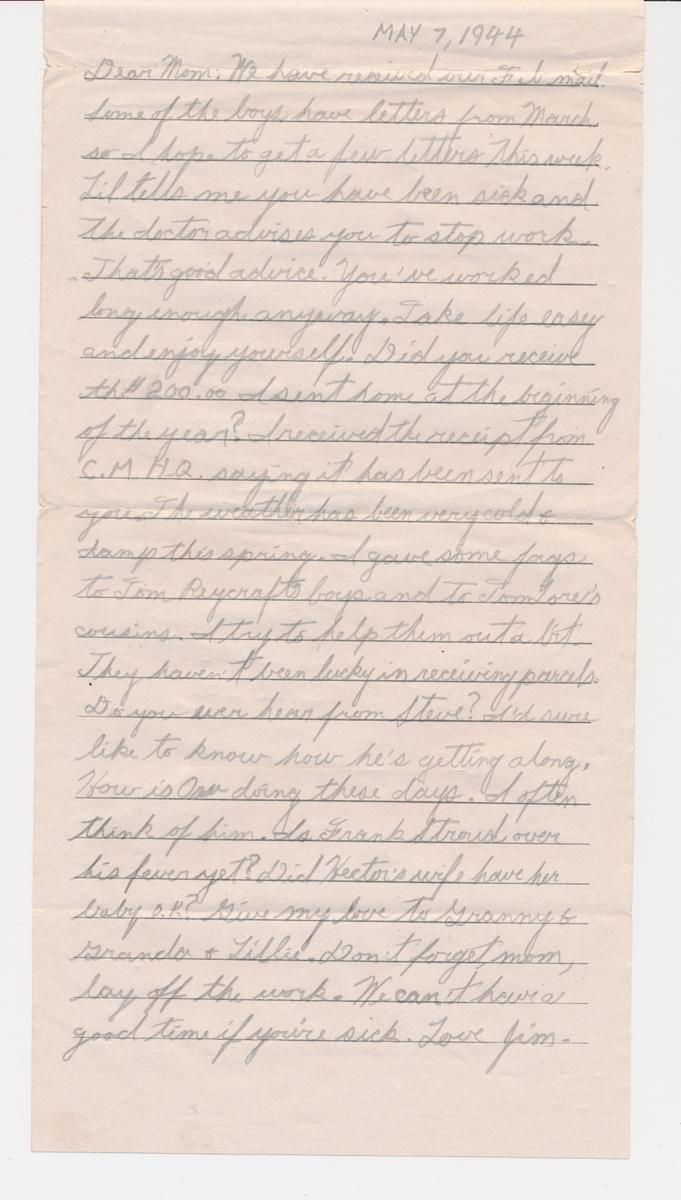 MAY 7, 1944
Dear Mom: We have received our Feb mail.
Some of the boys have letters from March
so I hope to get a few letters this week.
Lil tells me you have been sick and
the doctor advises you to stop work.
That's good advice. You've worked
long enough anyway. Take life easy
and enjoy yourself. Did you receive
the $200.00 I sent home at the beginning
of the year? I received the receipt from
C.M.H.Q. saying it has been sent to
you. The weather has been very cold &
damp this spring. I gave some fags
to Tom Reycraft's boys and to Tom
cousins. I try to help them out a bit.
They haven't been lucky in receiving parcels.
Do you ever hear from Steve? I'd sure
like to know how he's getting along.
How is doing these days. I often
think of him. Is Frank Stroud over
his fever yet? Did Hector's wife have her
baby O.K.? Give my love to Granny &
Granda & Lillie. Don't forget, mom,
lay off the work. We can't have a
good time if you're sick. Love Jim.